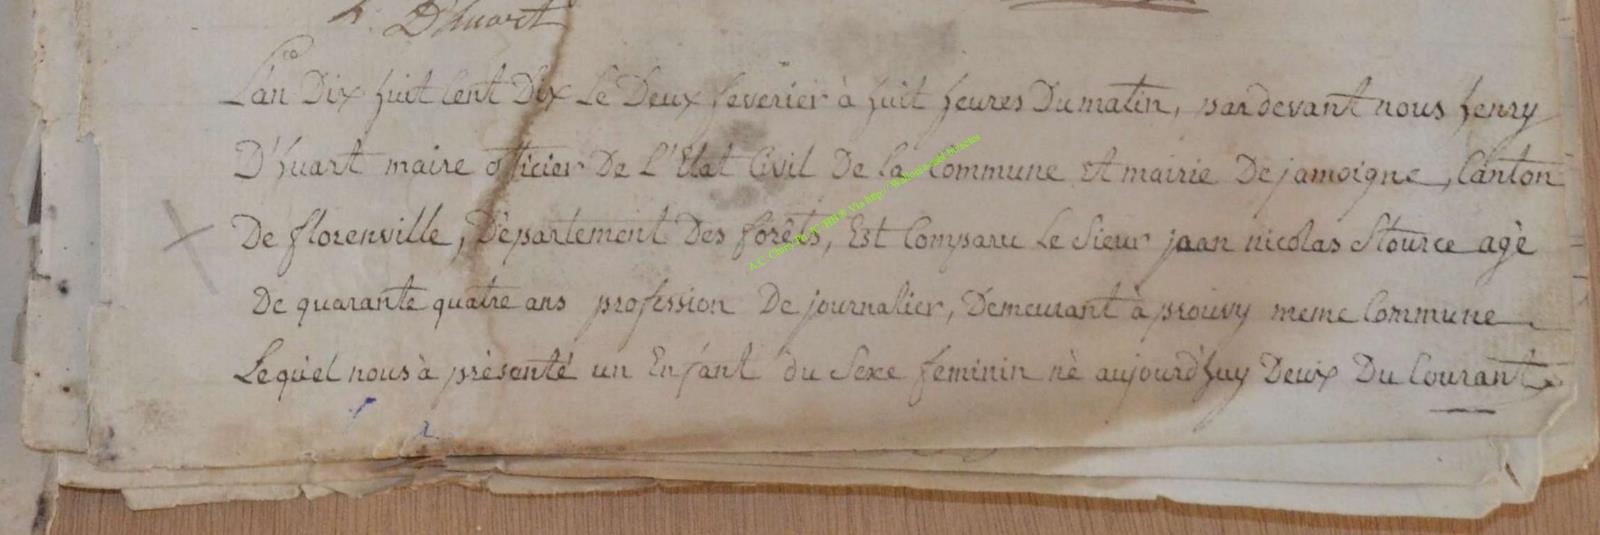 D'huart
L'an Dix huit Cent Dix Le Deux feverier à huit heures Du matin, pardevant nous henry
D'huart maire officier De L'Etat Civil De la Commune Et mairie De jamoigne, Canton
De florenville, Département Des forêts, Est Comparu Le Sieur jaan nicolas Stource agé
De quarante quatre ans profession De journalier, Demeurant à prouvy meme Commune
Lequel nous à présenté un Enfant du Sexe feminin né aujourd'huy Deux Du Courant